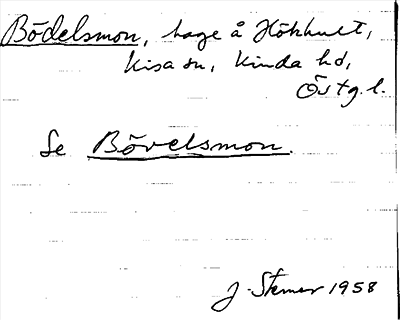 Bödelsmon, hage å Hökhult,
Kisa sn, Kinda hd,
Östg.l.
Se Bövelsmon.
J. Stemar 1958